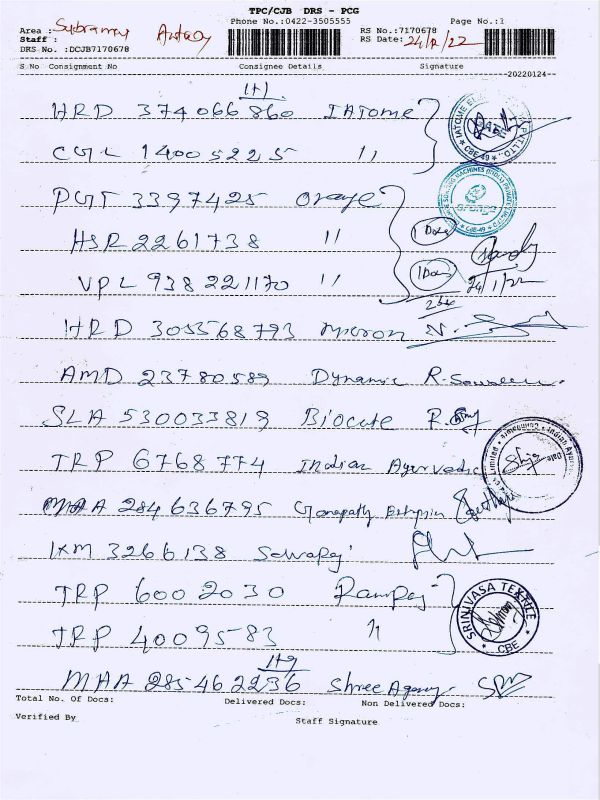 TPC/CJB DRS - PCG
Phone No.:0422-3505555 Page No.:1
Area :
Staff :
DRS No. :DCJB7170678
RS No.:7170678
RS Date:
S No Consignment No Consignee Details Signature
--20220124--
HRD 374066860 IATome
CGL 14005225 "
PGT 3397425 Orange
HSR 2261738 "
VPL 938221170 "
1 Doxe
24/1/22
HRD 305568793 Micron
AMD 23780589 Dynamic
SLA 530033819 Biocute
TRP 6768774 Indian Ayurvedic
MAA 284636795 Ganapathy
IXM 3266138 Selvaraj
TRP 6002030 Ramraj
TRP 4009583 "
SRINIVASA TEXTILE
CBE
MAA 285462236 Shree Agency
Total No. Of Docs: Delivered Docs: Non Delivered Docs:
Verified By Staff Signature